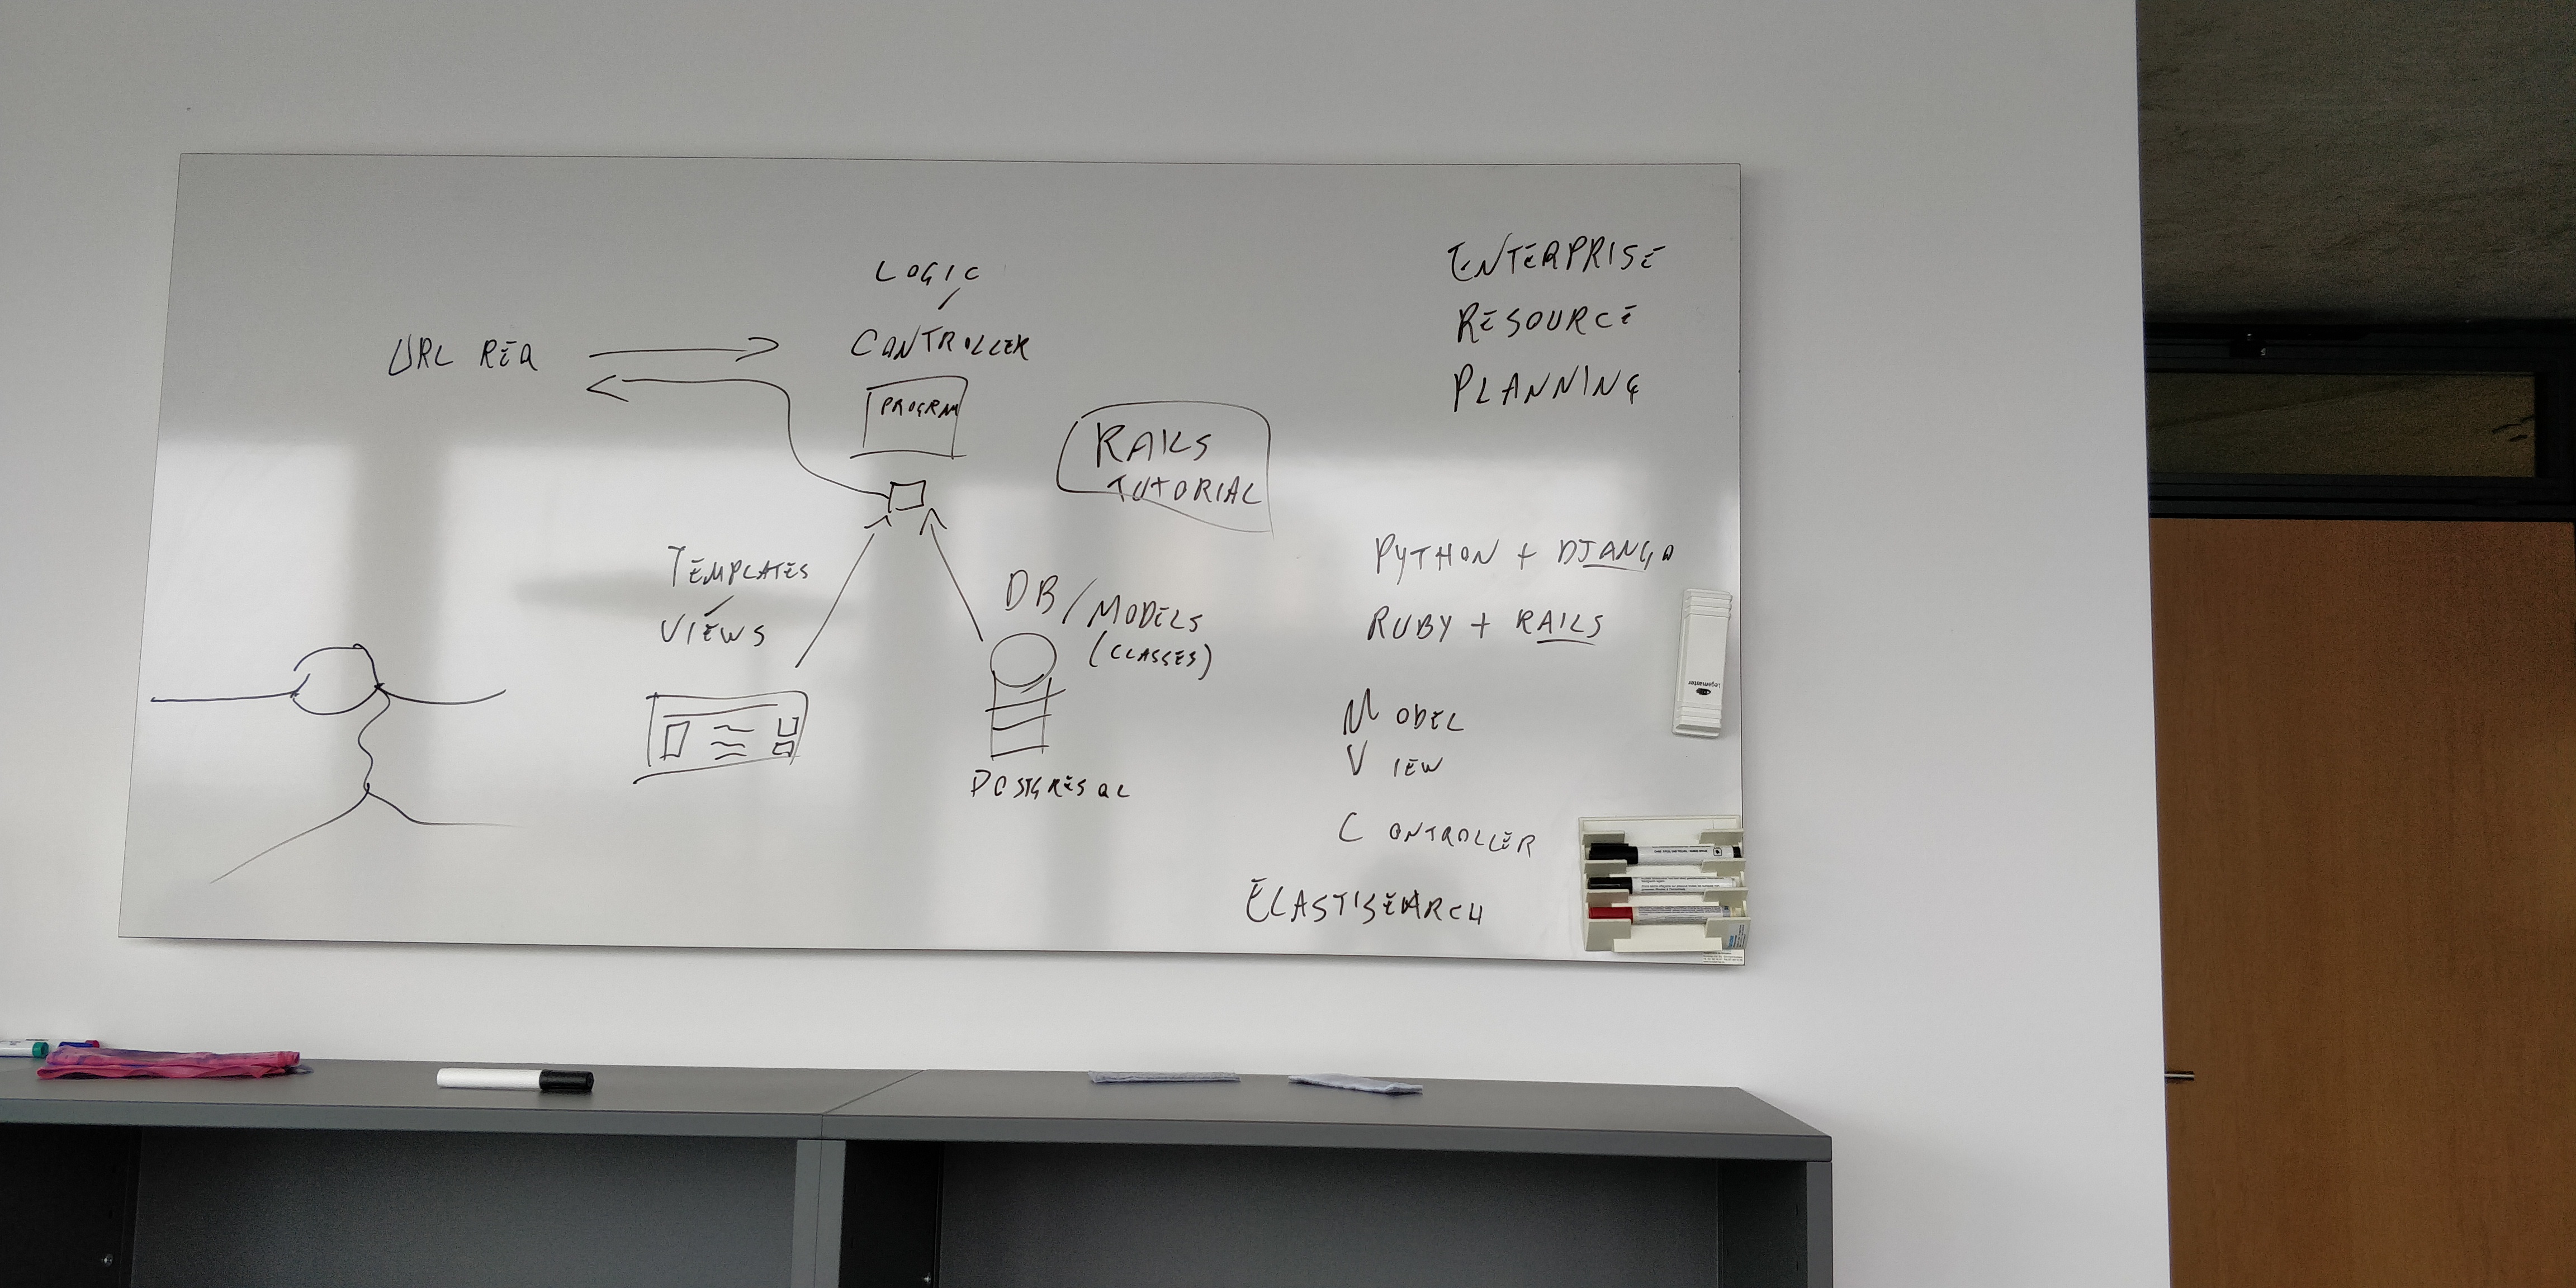 LOGIC
/
CONTROLLER
URL REQ
PROGRAM
RAILS
TUTORIAL
TEMPLATES
/
VIEWS
DB / MODELS
(CLASSES)
POSTGRESQL
ENTERPRISE
RESOURCE
PLANNING
PYTHON + DJANGO
RUBY + RAILS
MODEL
VIEW
CONTROLLER
ELASTISEARCH
Legamaster